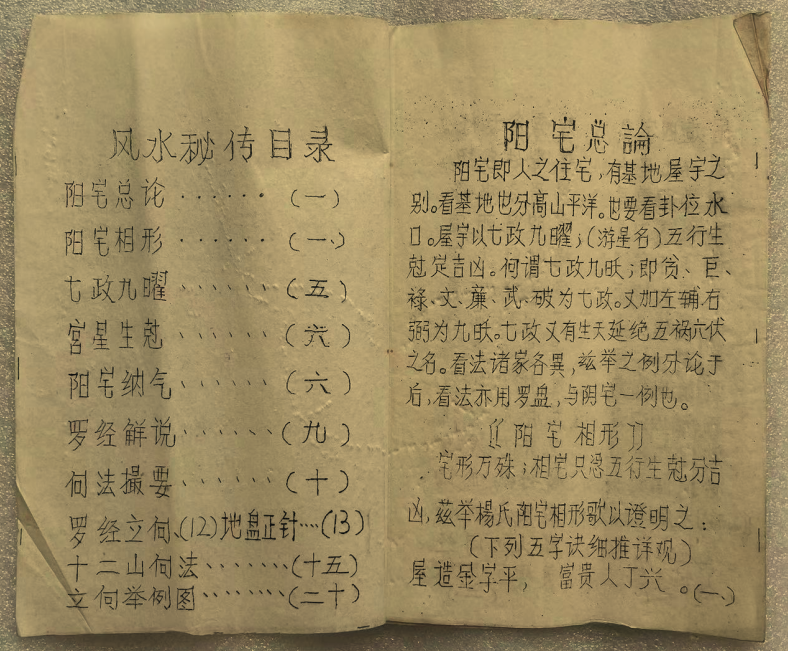 风水秘传目录
阳宅总论······(一)
阳宅相形······(一、)
七政九曜······(五)
宫星生尅······(六)
阳宅纳气······(六)
罗经解说······(九)
向法撮要······(十)
罗经立向、(12)地盘正针···(13)
十二山向法·······(十五)
立向举例图········(二十)
阳宅总論
阳宅即人之住宅,有基地屋宇之
别。看基地也分高山平洋。也要看卦位水
口。屋宇以七政九曜;(游星名)五行生
尅定吉凶。何谓七政九昳;即贪、巨、
禄、文、廉、武、破为七政。又加左辅右
弼为九昳。七政又有生天延绝五祸六伏
之名。看法诸家各異,兹举之例分论于
后,看法亦用罗盘,与阴宅一例也。
〔〔阳宅相形〕〕
宅形万殊;相宅只忌五行生尅分吉
凶,兹举楊氏阳宅相形歌以證明之:
(下列五字诀细推详观)
屋造金字平, 富贵人丁兴。(一、)